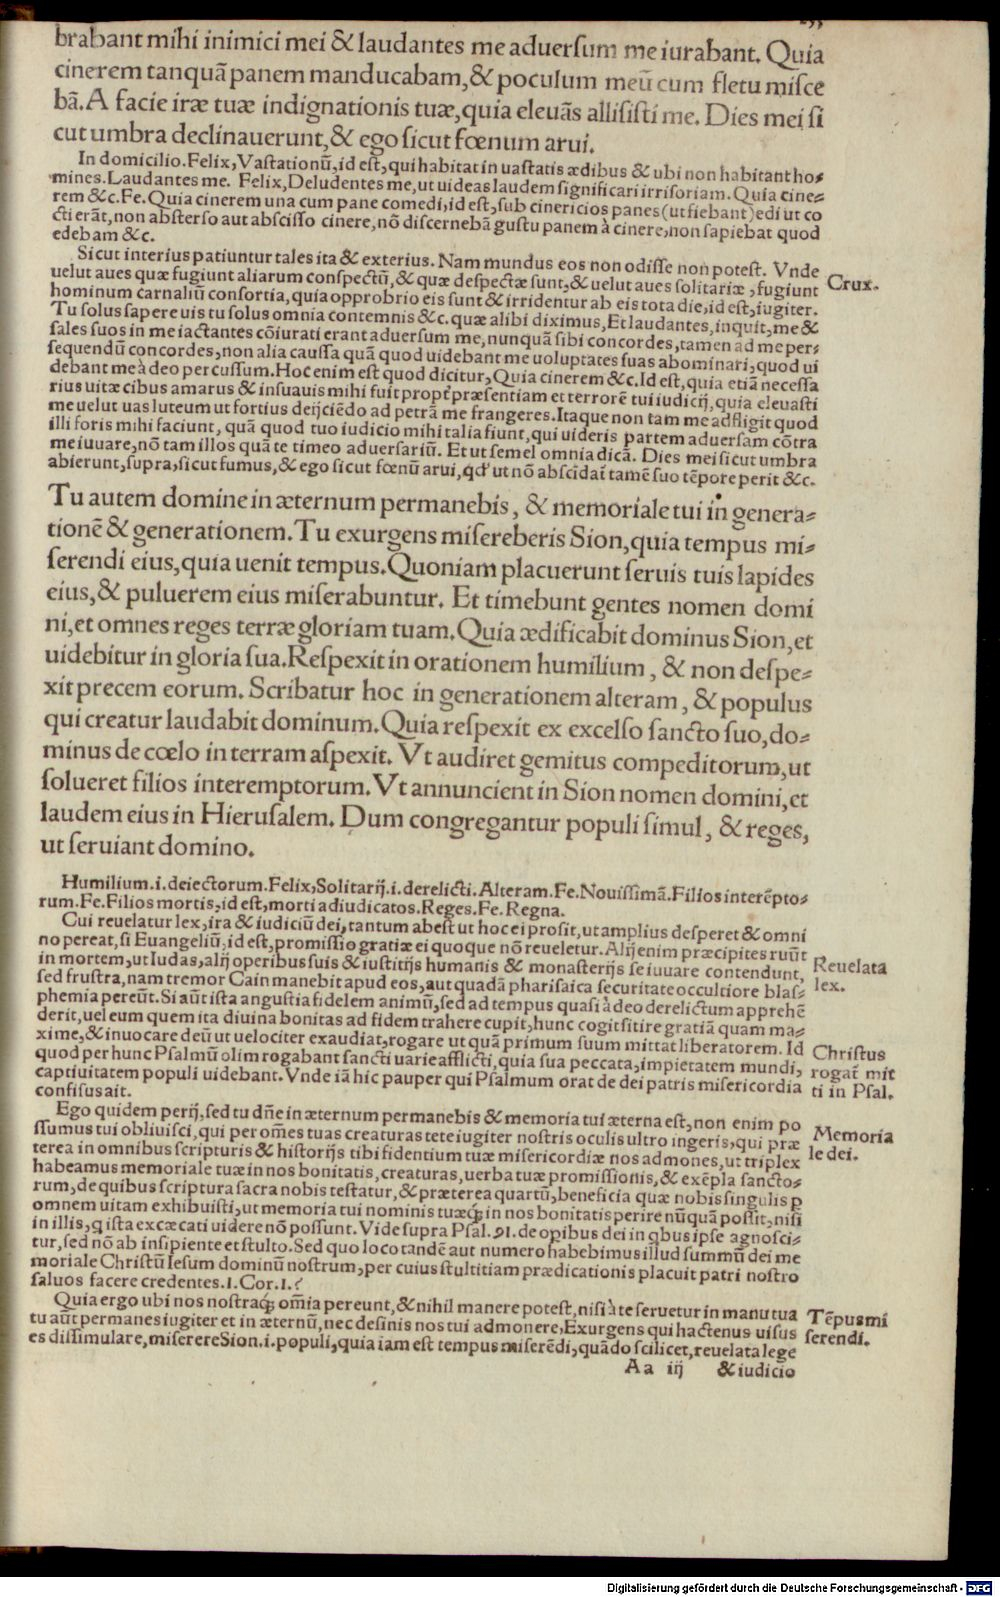 brabant mihi inimici mei & laudantes me aduersum me iurabant. Quia
cinerem tanquã panem manducabam, & poculum meũ cum fletu misce
bã. A facie iræ tuæ indignationis tuæ, quia eleuãs allisisti me. Dies mei si
cut umbra declinauerunt, & ego sicut fœnum arui.
In domicilio. Felix, Vastationũ, id est, qui habitat in uastatis ædibus & ubi non habitant ho⸗
mines. Laudantes me. Felix, Deludentes me, ut uideas laudem significari irrisoriam. Quia cine⸗
rem &c. Fe. Quia cinerem una cum pane comedi, id est, sub cinericios panes (ut fiebant) edi ut co
cti erãt, non absterso aut abscisso cinere, nõ discernebã gustu panem à cinere, non sapiebat quod
edebam &c.
Sicut interius patiuntur tales ita & exterius. Nam mundus eos non odisse non potest. Vnde
uelut aues quæ fugiunt aliarum conspectũ, & quæ despectæ sunt, & uelut aues solitariæ, fugiunt
Crux.
hominum carnaliũ consortia, quia opprobrio eis sunt & irridentur ab eis tota die, id est, iugiter.
Tu solus sapere uis tu solus omnia contemnis &c. quæ alibi diximus, Et laudantes, inquit, me &
sales suos in me iactantes cõiurati erant aduersum me, nunquã sibi concordes, tamen ad me per⸗
sequendũ concordes, non alia caussa quã quod uidebant me uoluptates suas abominari, quod ui
debant me à deo percussum. Hoc enim est quod dicitur, Quia cinerem &c. Id est, quia etiã necessa
rius uitæ cibus amarus & insuauis mihi fuit propt̃ præsentiam et terrorẽ tui iudicij, quia eleuasti
me uelut uas luteum ut fortius deijciẽdo ad petrã me frangeres. Itaque non tam me adfligit quod
illi foris mihi faciunt, quã quod tuo iudicio mihi talia fiunt, qui uideris partem aduersam cõtra
me iuuare, nõ tam illos quã te timeo aduersariũ. Et ut semel omnia dicã. Dies mei sicut umbra
abierunt, supra, sicut fumus, & ego sicut fœnũ arui, qd' ut nõ abscidat̃ tamẽ suo tẽpore perit &c.
Tu autem domine in æternum permanebis, & memoriale tui in genera⸗
tionẽ & generationem. Tu exurgens misereberis Sion, quia tempus mi⸗
serendi eius, quia uenit tempus. Quoniam placuerunt seruis tuis lapides
eius, & puluerem eius miserabuntur. Et timebunt gentes nomen domi
ni, et omnes reges terræ gloriam tuam. Quia ædificabit dominus Sion, et
uidebitur in gloria sua. Respexit in orationem humilium, & non despe⸗
xit precem eorum. Scribatur hoc in generationem alteram, & populus
qui creatur laudabit dominum. Quia respexit ex excelso sancto suo, do⸗
minus de cœlo in terram aspexit. Vt audiret gemitus compeditorum, ut
solueret filios interemptorum. Vt annuncient in Sion nomen domini, et
laudem eius in Hierusalem. Dum congregantur populi simul, & reges,
ut seruiant domino.
Humilium .i. deiectorum. Felix, Solitarij .i. derelicti. Alteram. Fe. Nouissimã. Filios interẽpto⸗
rum. Fe. Filios mortis, id est, morti adiudicatos. Reges. Fe. Regna.
Cui reuelatur lex, ira & iudiciũ dei, tantum abest ut hoc ei prosit, ut amplius desperet & omni
no pereat, si Euangeliũ, id est, promissio gratiæ ei quoque nõ reueletur. Alij enim præcipites ruũt
in mortem, ut Iudas, alij operibus suis & iustitijs humanis & monasterijs se iuuare contendunt,
Reuelata
lex.
sed frustra, nam tremor Cain manebit apud eos, aut quadã pharisaica securitate occultiore blas⸗
phemia pereũt. Si aũt ista angustia fidelem animũ, sed ad tempus quasi à deo derelictum apprehẽ
derit, uel eum quem ita diuina bonitas ad fidem trahere cupit, hunc cogit sitire gratiã quam ma⸗
xime, & inuocare deũ ut uelociter exaudiat, rogare ut quã primum suum mittat liberatorem. Id
quod per hunc Psalmũ olim rogabant sancti uarie afflicti, quia sua peccata, impietatem mundi,
captiuitatem populi uidebant. Vnde iã hic pauper qui Psalmum orat de dei patris misericordia
Christus
rogat̃ mit
ti in Psal.
confisus ait.
Ego quidem perij, sed tu dñe in æternum permanebis & memoria tui æterna est, non enim po
ssumus tui obliuisci, qui per om̃es tuas creaturas te te iugiter nostris oculis ultro ingeris, qui præ
Memoria
le dei.
terea in omnibus scripturis & historijs tibi fidentium tuæ misericordiæ nos admones, ut triplex
habeamus memoriale tuæ in nos bonitatis, creaturas, uerba tuæ promissionis, & exẽpla sancto⸗
rum, de quibus scriptura sacra nobis testatur, & præterea quartũ, beneficia quæ nobis singulis ꝑ
omnem uitam exhibuisti, ut memoria tui nominis tuæqꝫ in nos bonitatis perire nũquã possit, nisi
in illis, q ista excæcati uidere nõ possunt. Vide supra Psal. 91. de opibus dei in qbus ipse agnosci⸗
tur, sed nõ ab insipiente et stulto. Sed quo loco tandẽ aut numero habebimus illud summũ dei me
moriale Christũ Iesum dominũ nostrum, per cuius stultitiam prædicationis placuit patri nostro
saluos facere credentes. 1. Cor. 1.?
Quia ergo ubi nos nostraqꝫ om̃ia pereunt, & nihil manere potest, nisi à te seruetur in manu tua
tu aũt permanes iugiter et in æternũ, nec desinis nos tui admonere, Exurgens qui hactenus uisus
Tẽpus mi
serendi.
es dissimulare, miserere Sion .i. populi, quia iam est tempus miserẽdi, quãdo scilicet, reuelata lege
Aa iij & iudicio
Digitalisierung gefördert durch die Deutsche Forschungsgemeinschaft - DFG